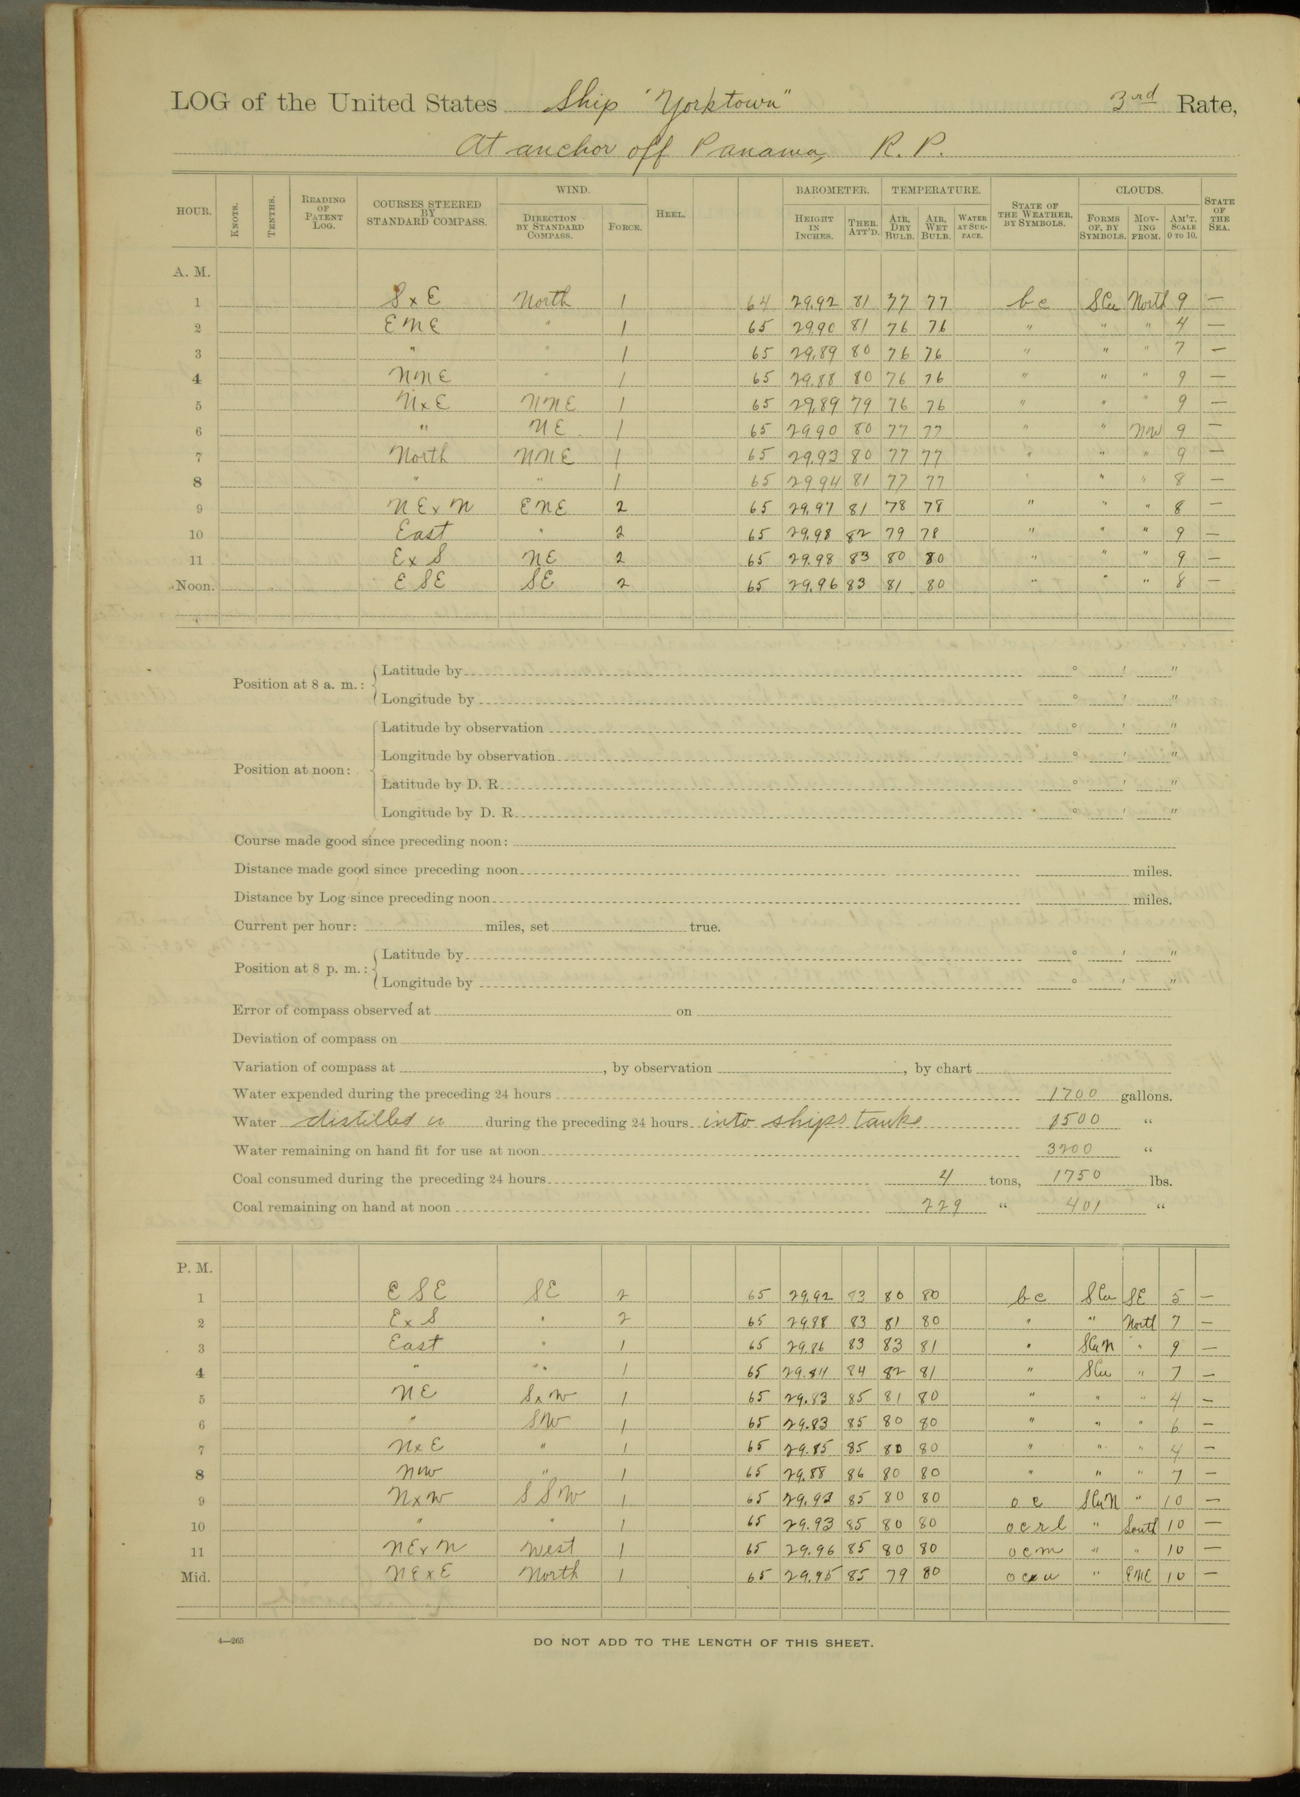 LOG of the United States Ship "Yorktown" 3rd Rate,
At anchor off Panama, R. P.
HOUR. KNOTS. TENTHS. READING OF PATENT LOG. COURSES STEERED BY STANDARD COMPASS. WIND. DIRECTION BY STANDARD COMPASS. FORCE. HEEL. BAROMETER. HEIGHT IN INCHES. THER. ATT'D. TEMPERATURE. AIR, DRY BULB. AIR, WET BULB. WATER AT SURFACE. STATE OF THE WEATHER, BY SYMBOLS. CLOUDS. FORMS OF, BY SYMBOLS. MOVING FROM. AM'T. SCALE 0 TO 10. STATE OF THE SEA.
A. M.
1 S x E North 1 64 29.92 81 77 77 bc SCu North 9 —
2 ENE " 1 65 29.90 81 76 76 " " " 4 —
3 " " 1 65 29.89 80 76 76 " " " 7 —
4 NNE " 1 65 29.88 80 76 76 " " " 9 —
5 N x E NNE 1 65 29.89 79 76 76 " " " 9 —
6 " NE 1 65 29.90 80 77 77 " " NW 9 —
7 North NNE 1 65 29.93 80 77 77 " " " 9 —
8 " " 1 65 29.94 81 77 77 " " " 8 —
9 NE x N ENE 2 65 29.97 81 78 78 " " " 8 —
10 East " 2 65 29.98 82 79 78 " " " 9 —
11 E x S NE 2 65 29.98 83 80 80 " " " 9 —
Noon. ESE SE 2 65 29.96 83 81 80 " " " 8 —
Position at 8 a. m.: Latitude by ° ′ ″
Longitude by ° ′ ″
Position at noon: Latitude by observation ° ′ ″
Longitude by observation ° ′ ″
Latitude by D. R. ° ′ ″
Longitude by D. R. ° ′ ″
Course made good since preceding noon:
Distance made good since preceding noon miles.
Distance by Log since preceding noon miles.
Current per hour: miles, set true.
Position at 8 p. m.: Latitude by ° ′ ″
Longitude by ° ′ ″
Error of compass observed at on
Deviation of compass on
Variation of compass at , by observation , by chart
Water expended during the preceding 24 hours 1700 gallons.
Water distilled during the preceding 24 hours into ships tanks 1500 "
Water remaining on hand fit for use at noon 3200 "
Coal consumed during the preceding 24 hours 4 tons, 1750 lbs.
Coal remaining on hand at noon 229 " 401 "
P. M.
1 ESE SE 2 65 29.92 83 80 80 bc SCu SE 5 —
2 E x S " 2 65 29.88 83 81 80 " " North 7 —
3 East " 1 65 29.86 83 83 81 " SCuN " 9 —
4 " " 1 65 29.84 84 82 81 " SCu " 7 —
5 NE S x W 1 65 29.83 85 81 80 " " " 4 —
6 " SW 1 65 29.83 85 80 80 " " " 6 —
7 N x E " 1 65 29.85 85 80 80 " " " 4 —
8 NW " 1 65 29.88 86 80 80 " " " 7 —
9 N x W SSW 1 65 29.93 85 80 80 oc SCuN " 10 —
10 " " 1 65 29.93 85 80 80 ocrl " South 10 —
11 NE x N West 1 65 29.96 85 80 80 ocm " " 10 —
Mid. NE x E North 1 65 29.95 85 79 80 " ENE 10 —
4—265
DO NOT ADD TO THE LENGTH OF THIS SHEET.